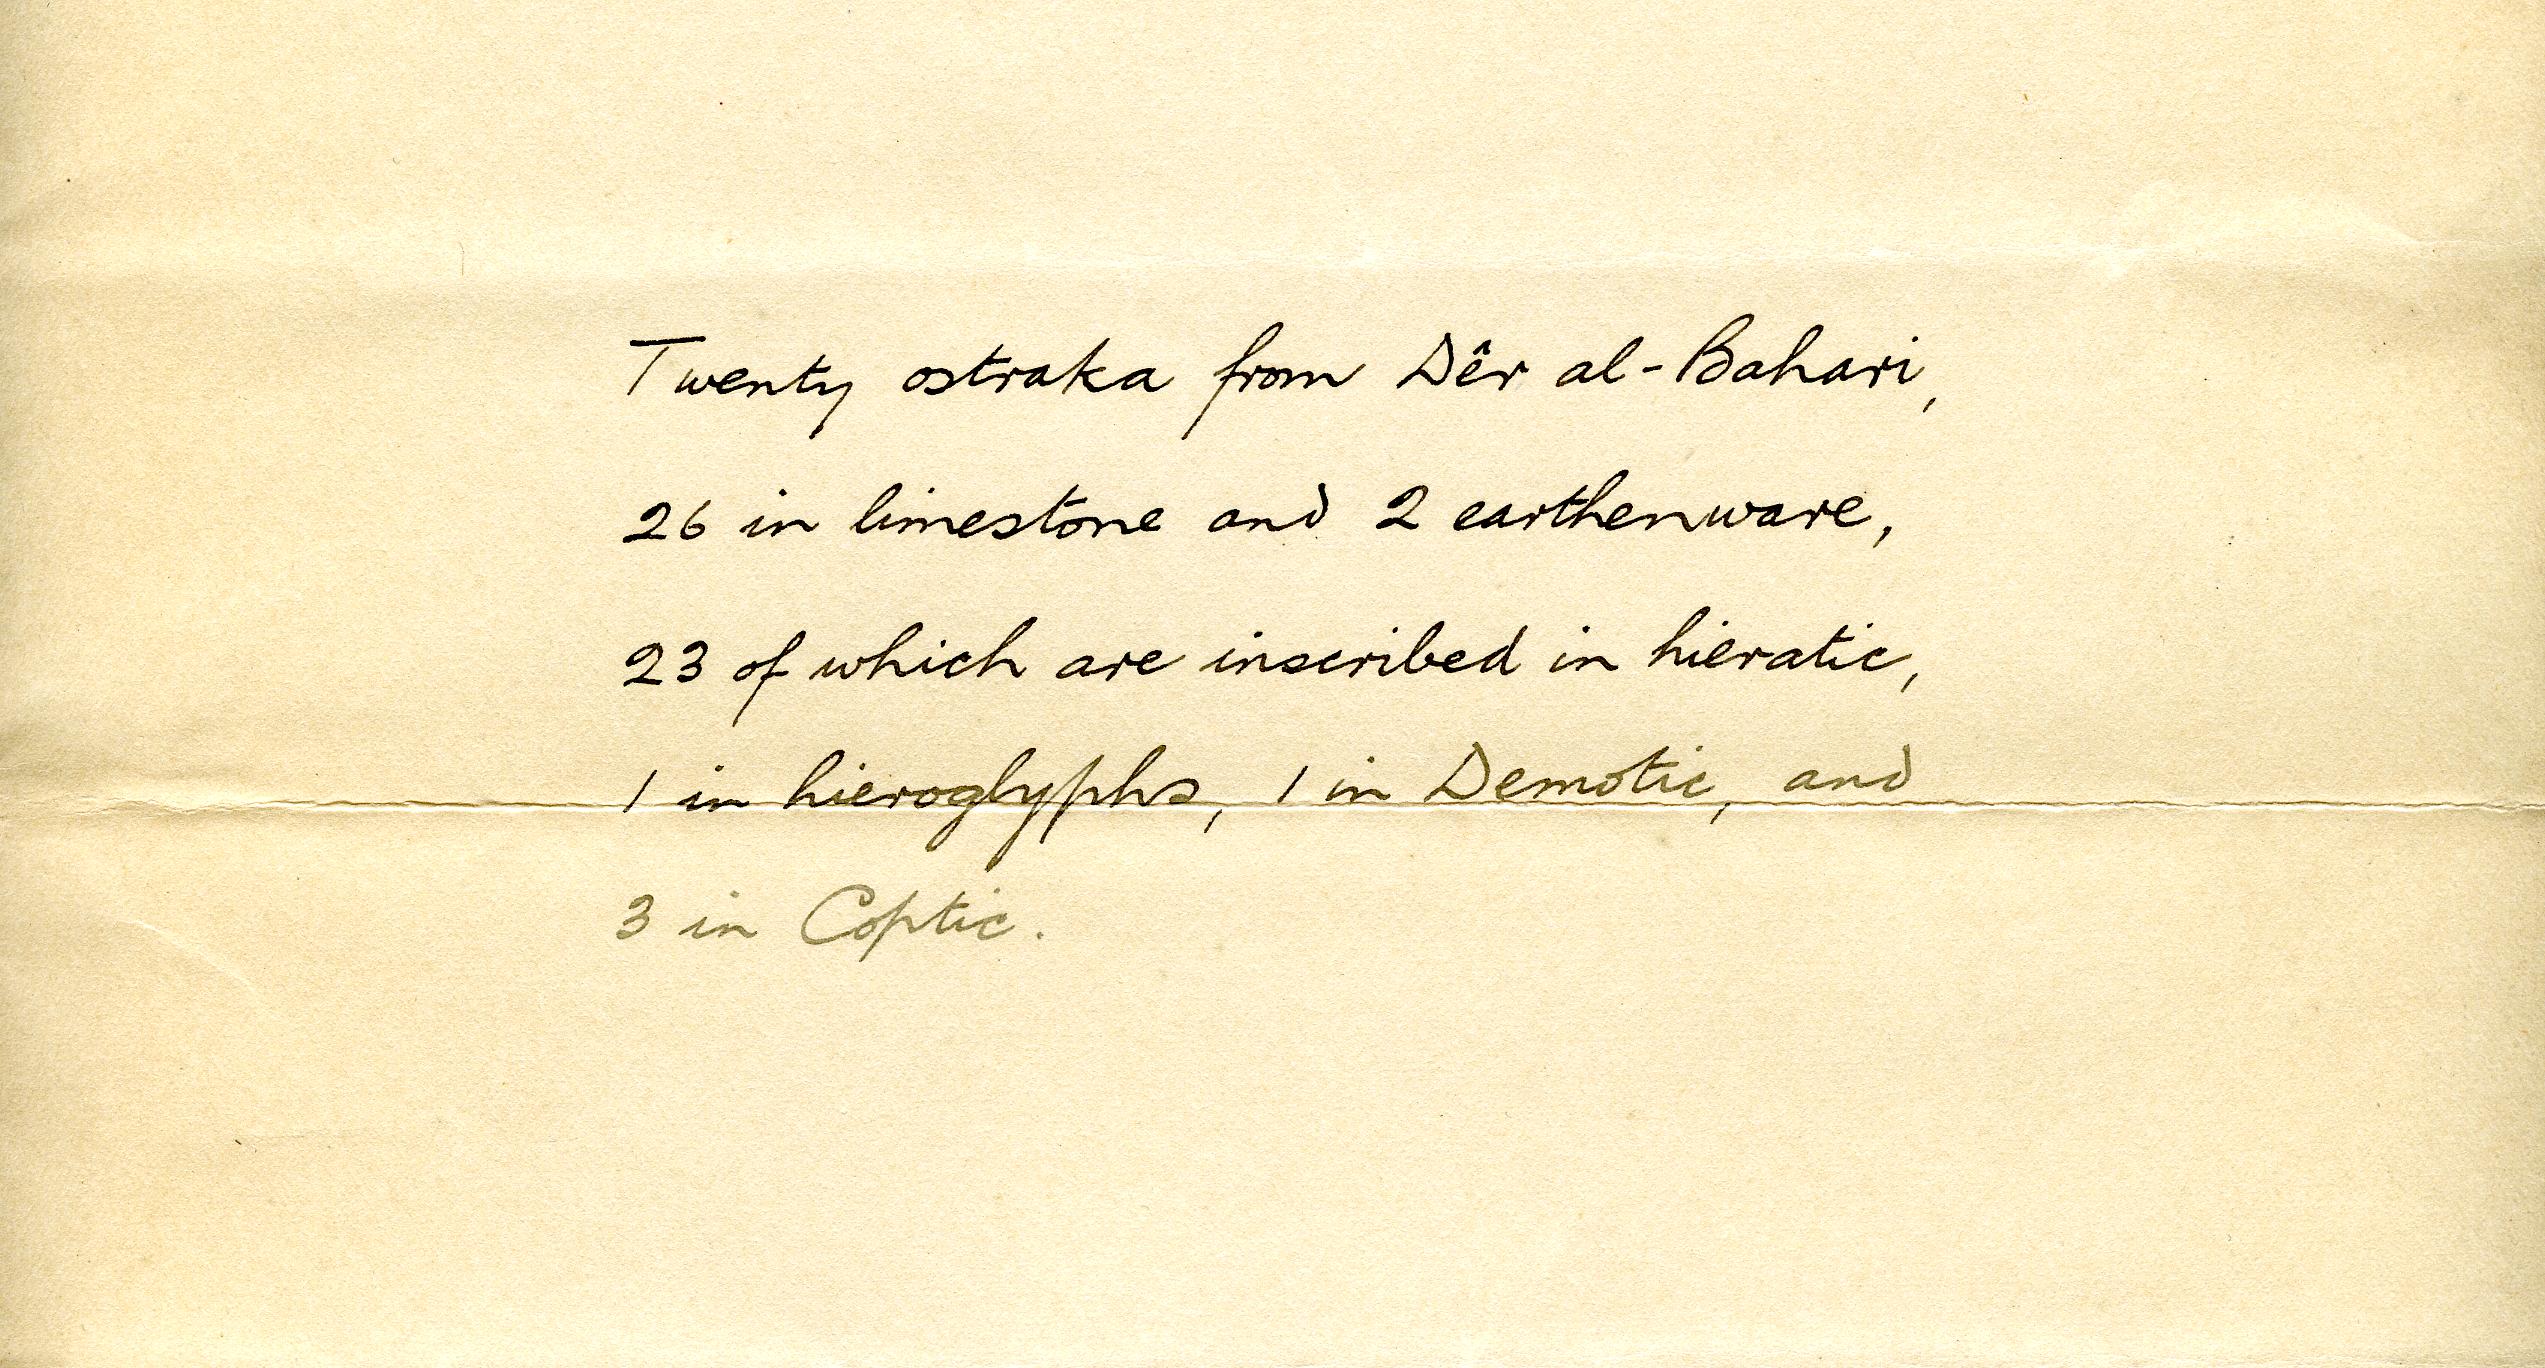 Twenty ostraka from Dêr al-Bahari,
26 in limestone and 2 earthenware,
23 of which are inscribed in hieratic,
1 in hieroglyphs, 1 in Demotic, and
3 in Coptic.